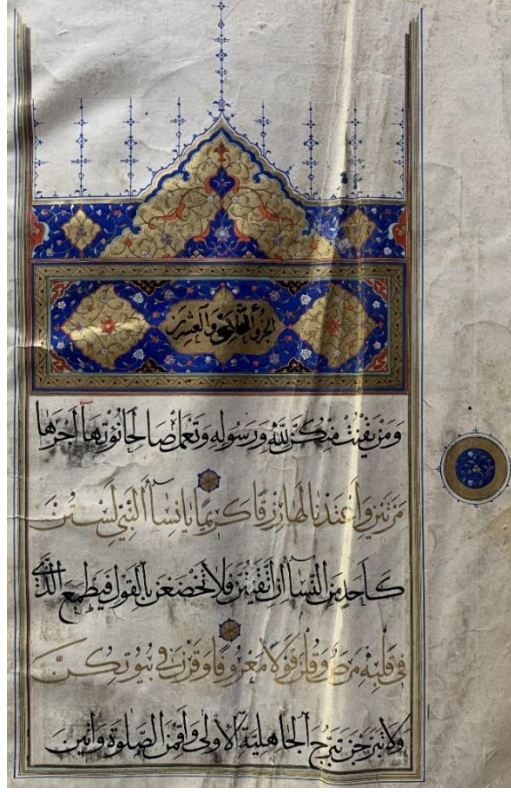 الجزؤ والعشرين
ومن يقنت منكن لله ورسوله وتعمل صالحا نؤتها أجرها
مرتين وأعتدنا لها رزقا كريما يانسآ النبي لستن
كأحد من النسآ ان اتقيتن فلا تخضعن بالقول فيطمع الذي
في قلبه مرض وقلن قولا معروفا وقرن في بيوتكن
ولا تبرجن تبرج الجاهلية الأولى وأقمن الصلوة وآتين